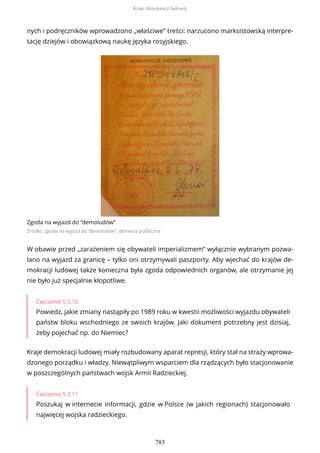 Kraje demokracji ludowej
nych i podręczników wprowadzono „właściwe” treści: narzucono marksistowską interpre-
tację dziejów i obowiązkową naukę języka rosyjskiego.
KONOTACJE URZĘDOWE
Zgoda na wyjazd do "demoludów"
Źródło: Zgoda na wyjazd do "demoludów", domena publiczna
W obawie przed „zarażeniem się obywateli imperializmem” wyłącznie wybranym pozwa-
lano na wyjazd za granicę – tylko oni otrzymywali paszporty. Aby wjechać do krajów de-
mokracji ludowej także konieczna była zgoda odpowiednich organów, ale otrzymanie jej
nie było już specjalnie kłopotliwe.
Ćwiczenie 5.3.10
Powiedz, jakie zmiany nastąpiły po 1989 roku w kwestii możliwości wyjazdu obywateli
państw bloku wschodniego ze swoich krajów. Jaki dokument potrzebny jest dzisiaj,
żeby pojechać np. do Niemiec?
Kraje demokracji ludowej miały rozbudowany aparat represji, który stał na straży wprowa-
dzonego porządku i władzy. Niewątpliwym wsparciem dla rządzących było stacjonowanie
w poszczególnych państwach wojsk Armii Radzieckiej.
Ćwiczenie 5.3.11
Poszukaj w internecie informacji, gdzie w Polsce (w jakich regionach) stacjonowało
najwięcej wojska radzieckiego.
783